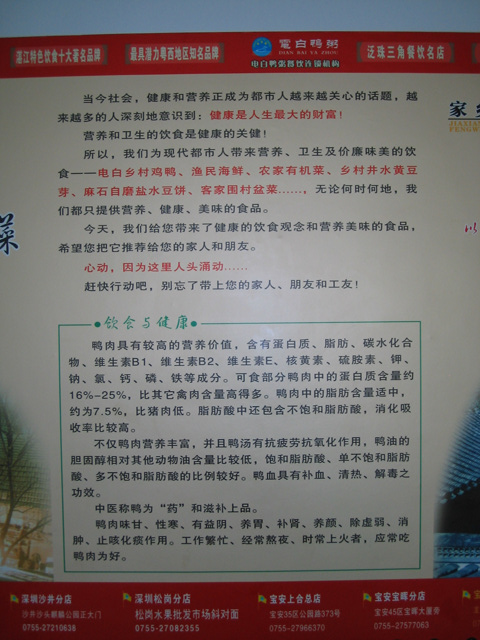 湛江特色饮食十大著名品牌
最具潜力粤西地区知名品牌
電白鸭粥
DIAN BAI YA ZHOU
电白鸭粥餐饮连锁机构
泛珠三角餐饮名店
当今社会，健康和营养正成为都市人越来越关心的话题，越
来越多的人深刻地意识到：健康是人生最大的财富！
营养和卫生的饮食是健康的关健！
所以，我们为现代都市人带来营养、卫生及价廉味美的饮
食——电白乡村鸡鸭、渔民海鲜、农家有机菜、乡村井水黄豆
芽、麻石自磨盐水豆饼、客家围村盆菜……，无论何时何地，我
们都只提供营养、健康、美味的食品。
今天，我们给您带来了健康的饮食观念和营养美味的食品，
希望您把它推荐给您的家人和朋友。
心动，因为这里人头涌动……
赶快行动吧，别忘了带上您的家人、朋友和工友！
家
菜
饮食与健康
鸭肉具有较高的营养价值，含有蛋白质、脂肪、碳水化合
物、维生素B1、维生素B2、维生素E、核黄素、硫胺素、钾、
钠、氯、钙、磷、铁等成分。可食部分鸭肉中的蛋白质含量约
16%-25%，比其它禽肉含量高得多。鸭肉中的脂肪含量适中，
约为7.5%，比猪肉低。脂肪酸中还包含不饱和脂肪酸，消化吸
收率比较高。
不仅鸭肉营养丰富，并且鸭汤有抗疲劳抗氧化作用，鸭油的
胆固醇相对其他动物油含量比较低，饱和脂肪酸、单不饱和脂肪
酸、多不饱和脂肪酸的比例较好。鸭血具有补血、清热、解毒之
功效。
中医称鸭为“药”和滋补上品。
鸭肉味甘、性寒、有益阴、养胃、补肾、养颜、除虚弱、消
肿、止咳化痰作用。工作繁忙、经常熬夜、时常上火者，应常吃
鸭肉为好。
深圳沙井分店
沙井沙头麒麟公园正大门
0755-27210638
深圳松岗分店
松岗水果批发市场斜对面
0755-27082355
宝安上合总店
宝安35区公园路373号
0755-27966370
宝安宝晖分店
宝安45区宝晖大厦旁
0755-27577063